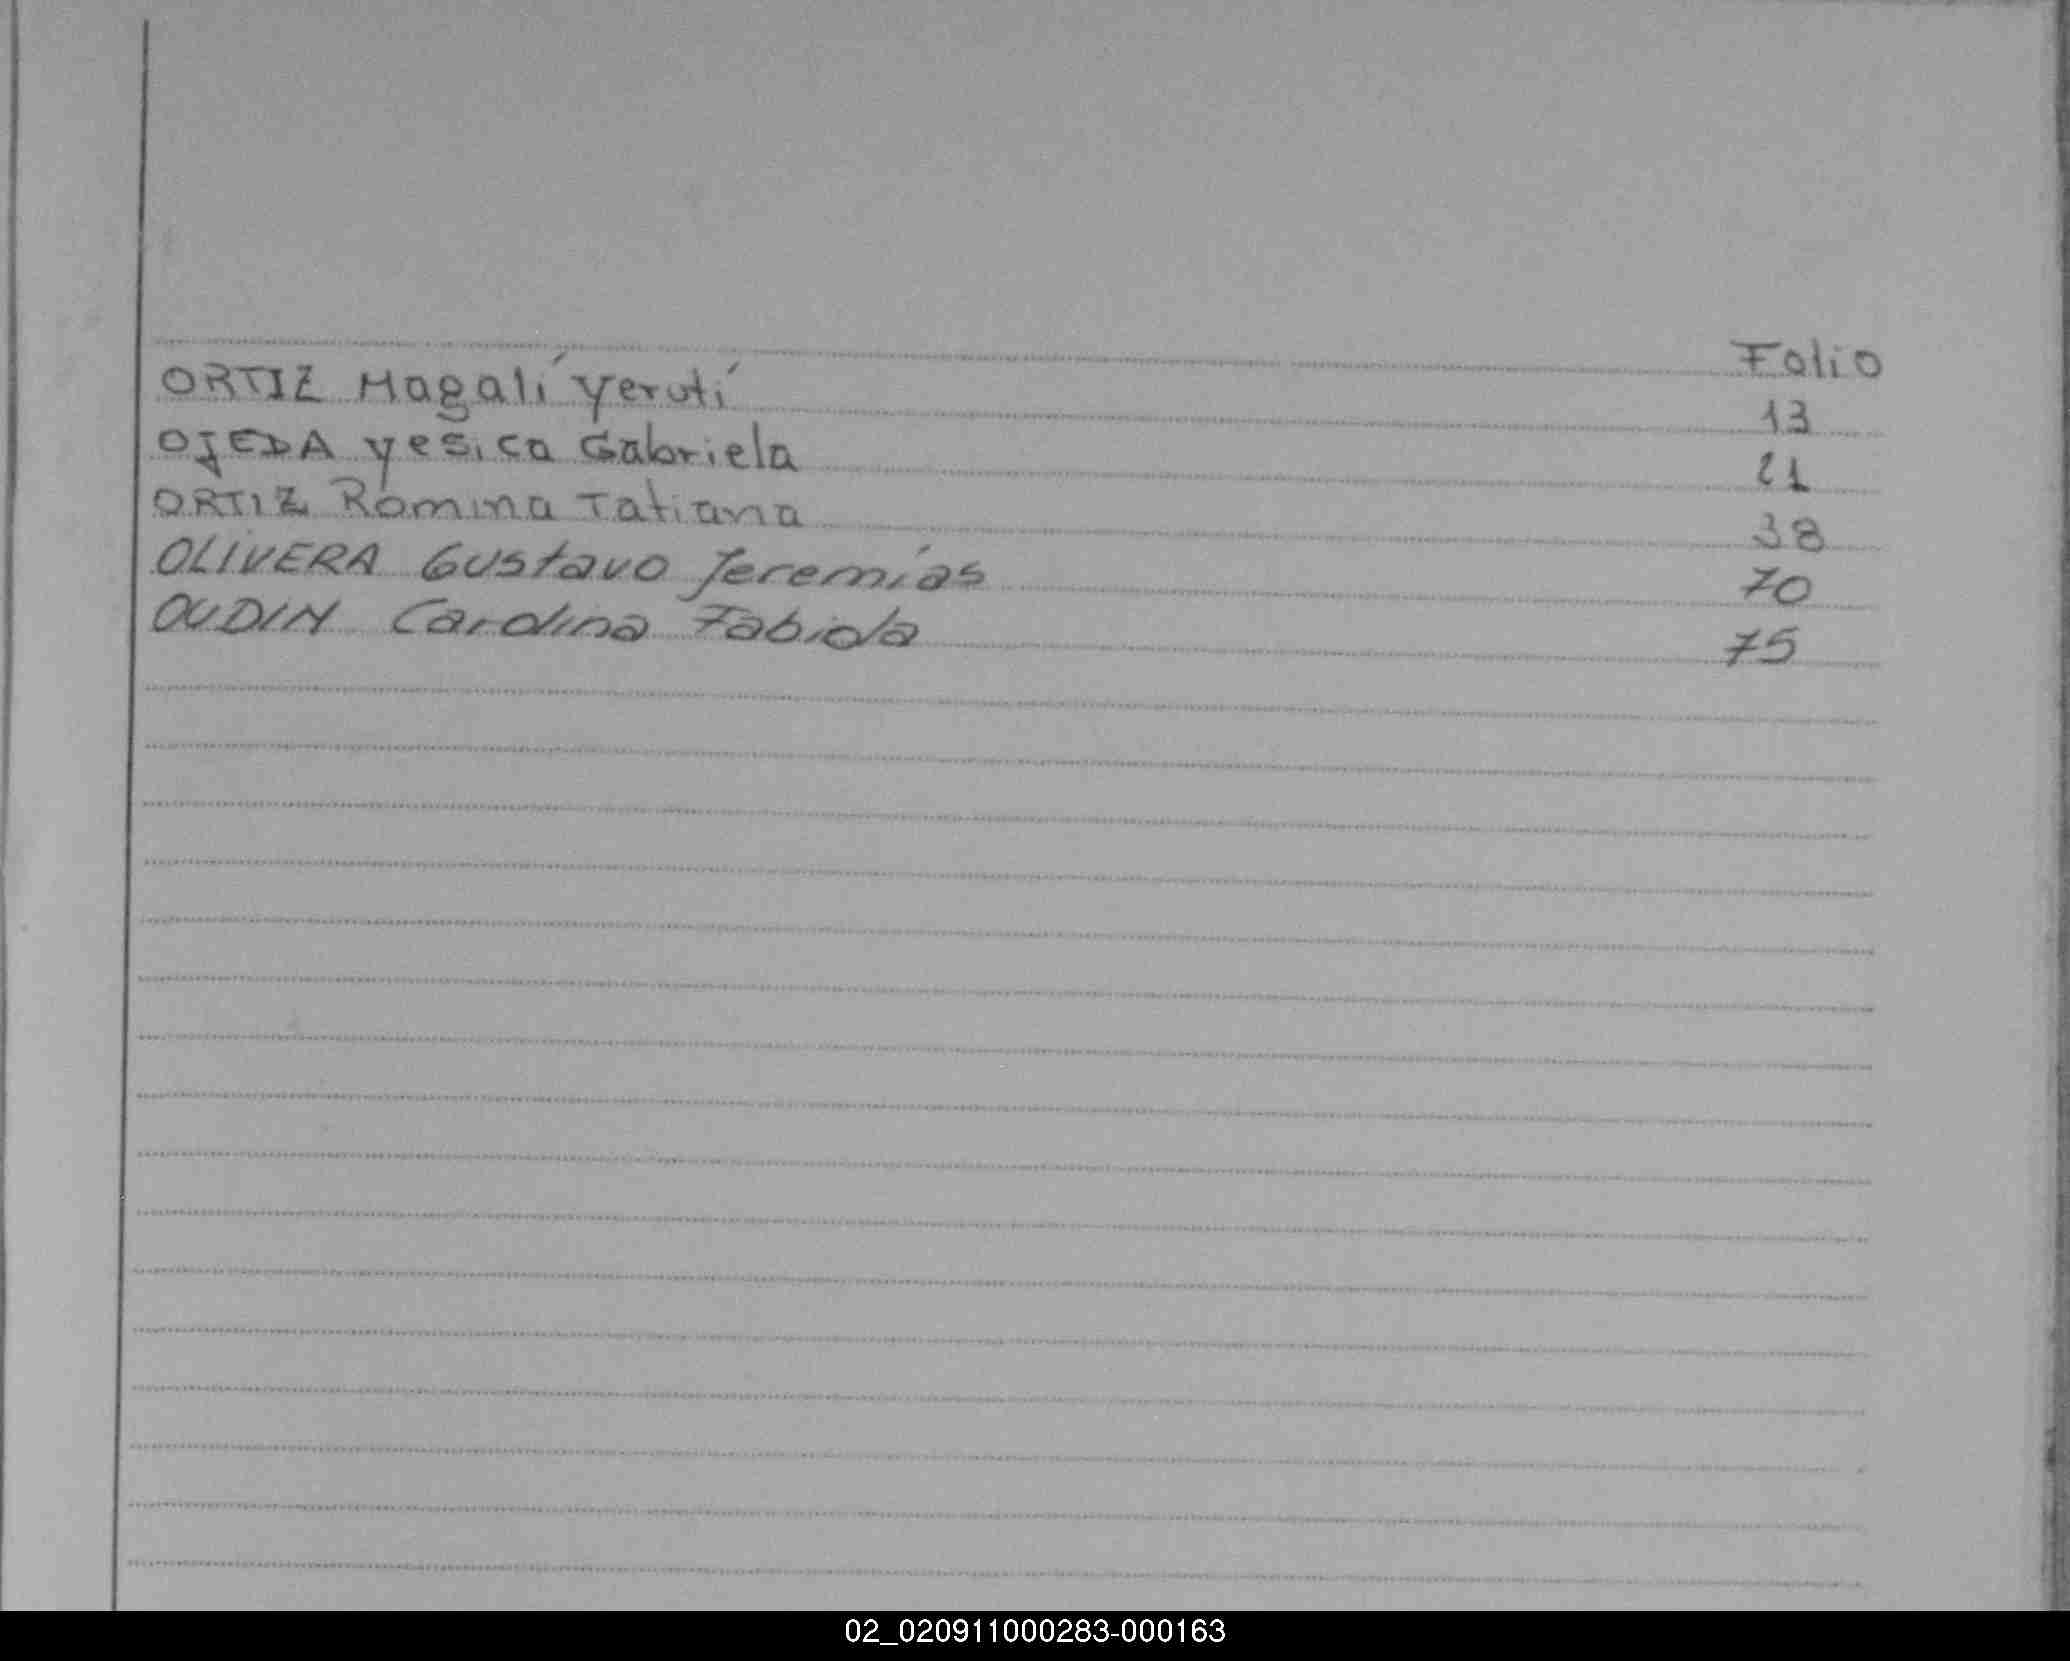 Folio
ORTIZ Magalí Yerutí 13
OJEDA Yesica Gabriela 21
ORTIZ Romina Tatiana 38
OLIVERA Gustavo Jeremías 70
OUDIN Carolina Fabiola 75
02_020911000283-000163